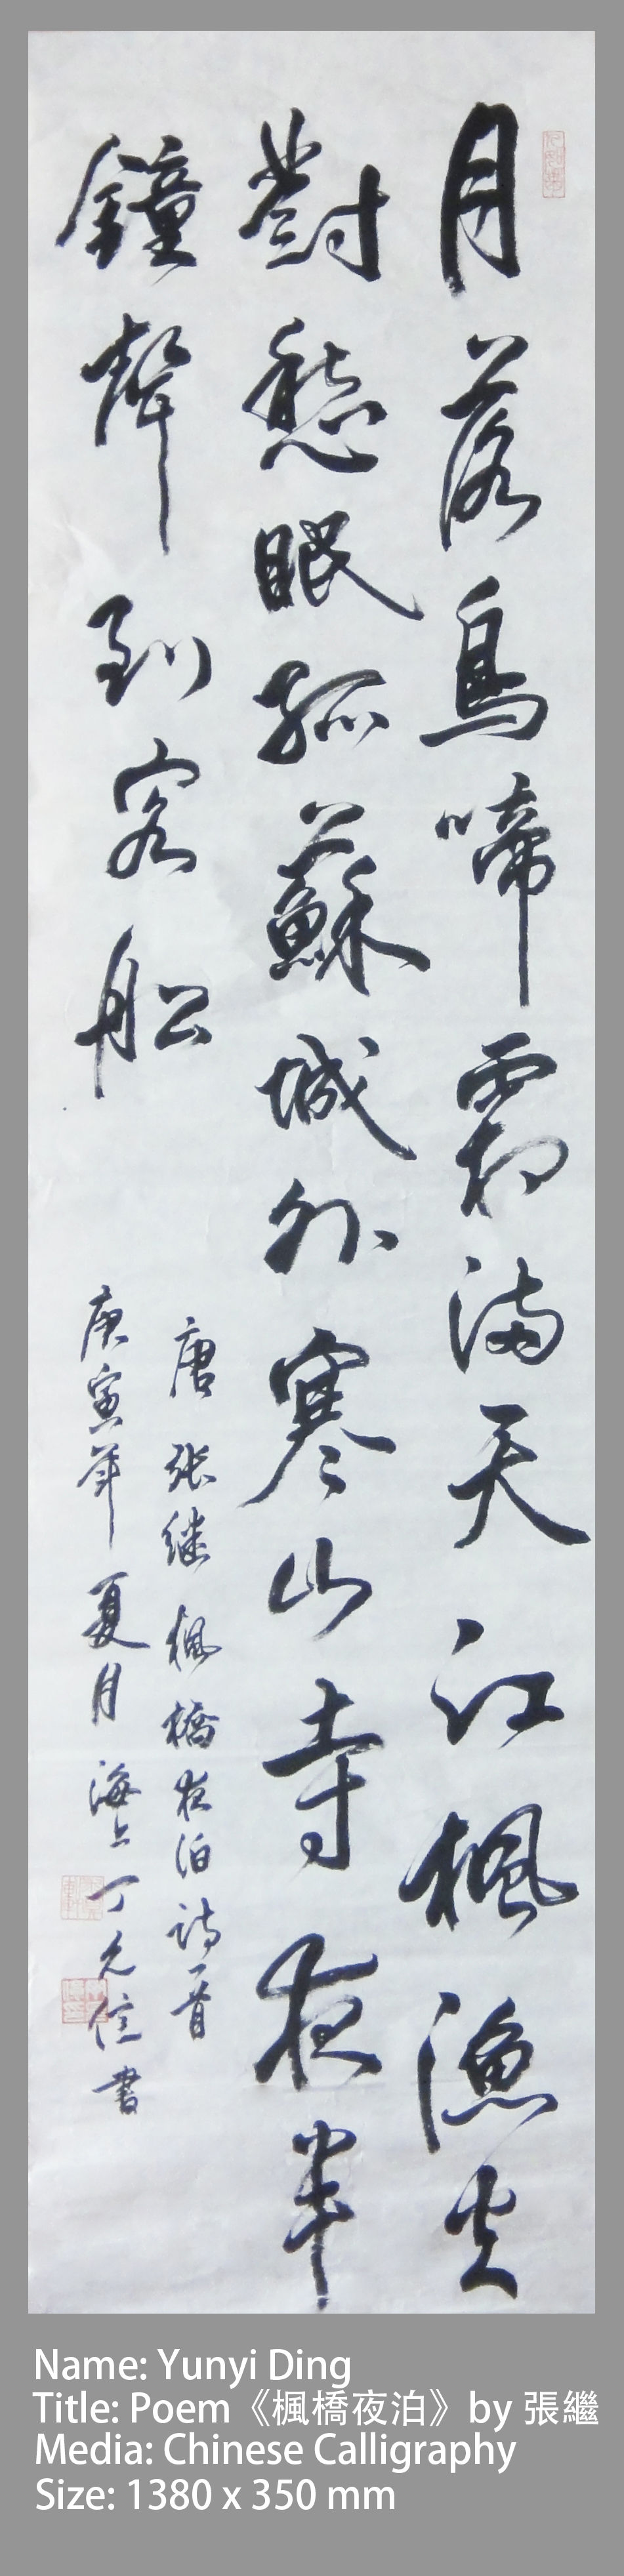 月落烏啼霜滿天江楓漁火
對愁眠孤蘇城外寒山寺夜半
鐘聲到客船
唐张继楓橋夜泊詩一首
庚寅年夏月海上丁允書
Name: Yunyi Ding
Title: Poem《楓橋夜泊》by 張繼
Media: Chinese Calligraphy
Size: 1380 x 350 mm